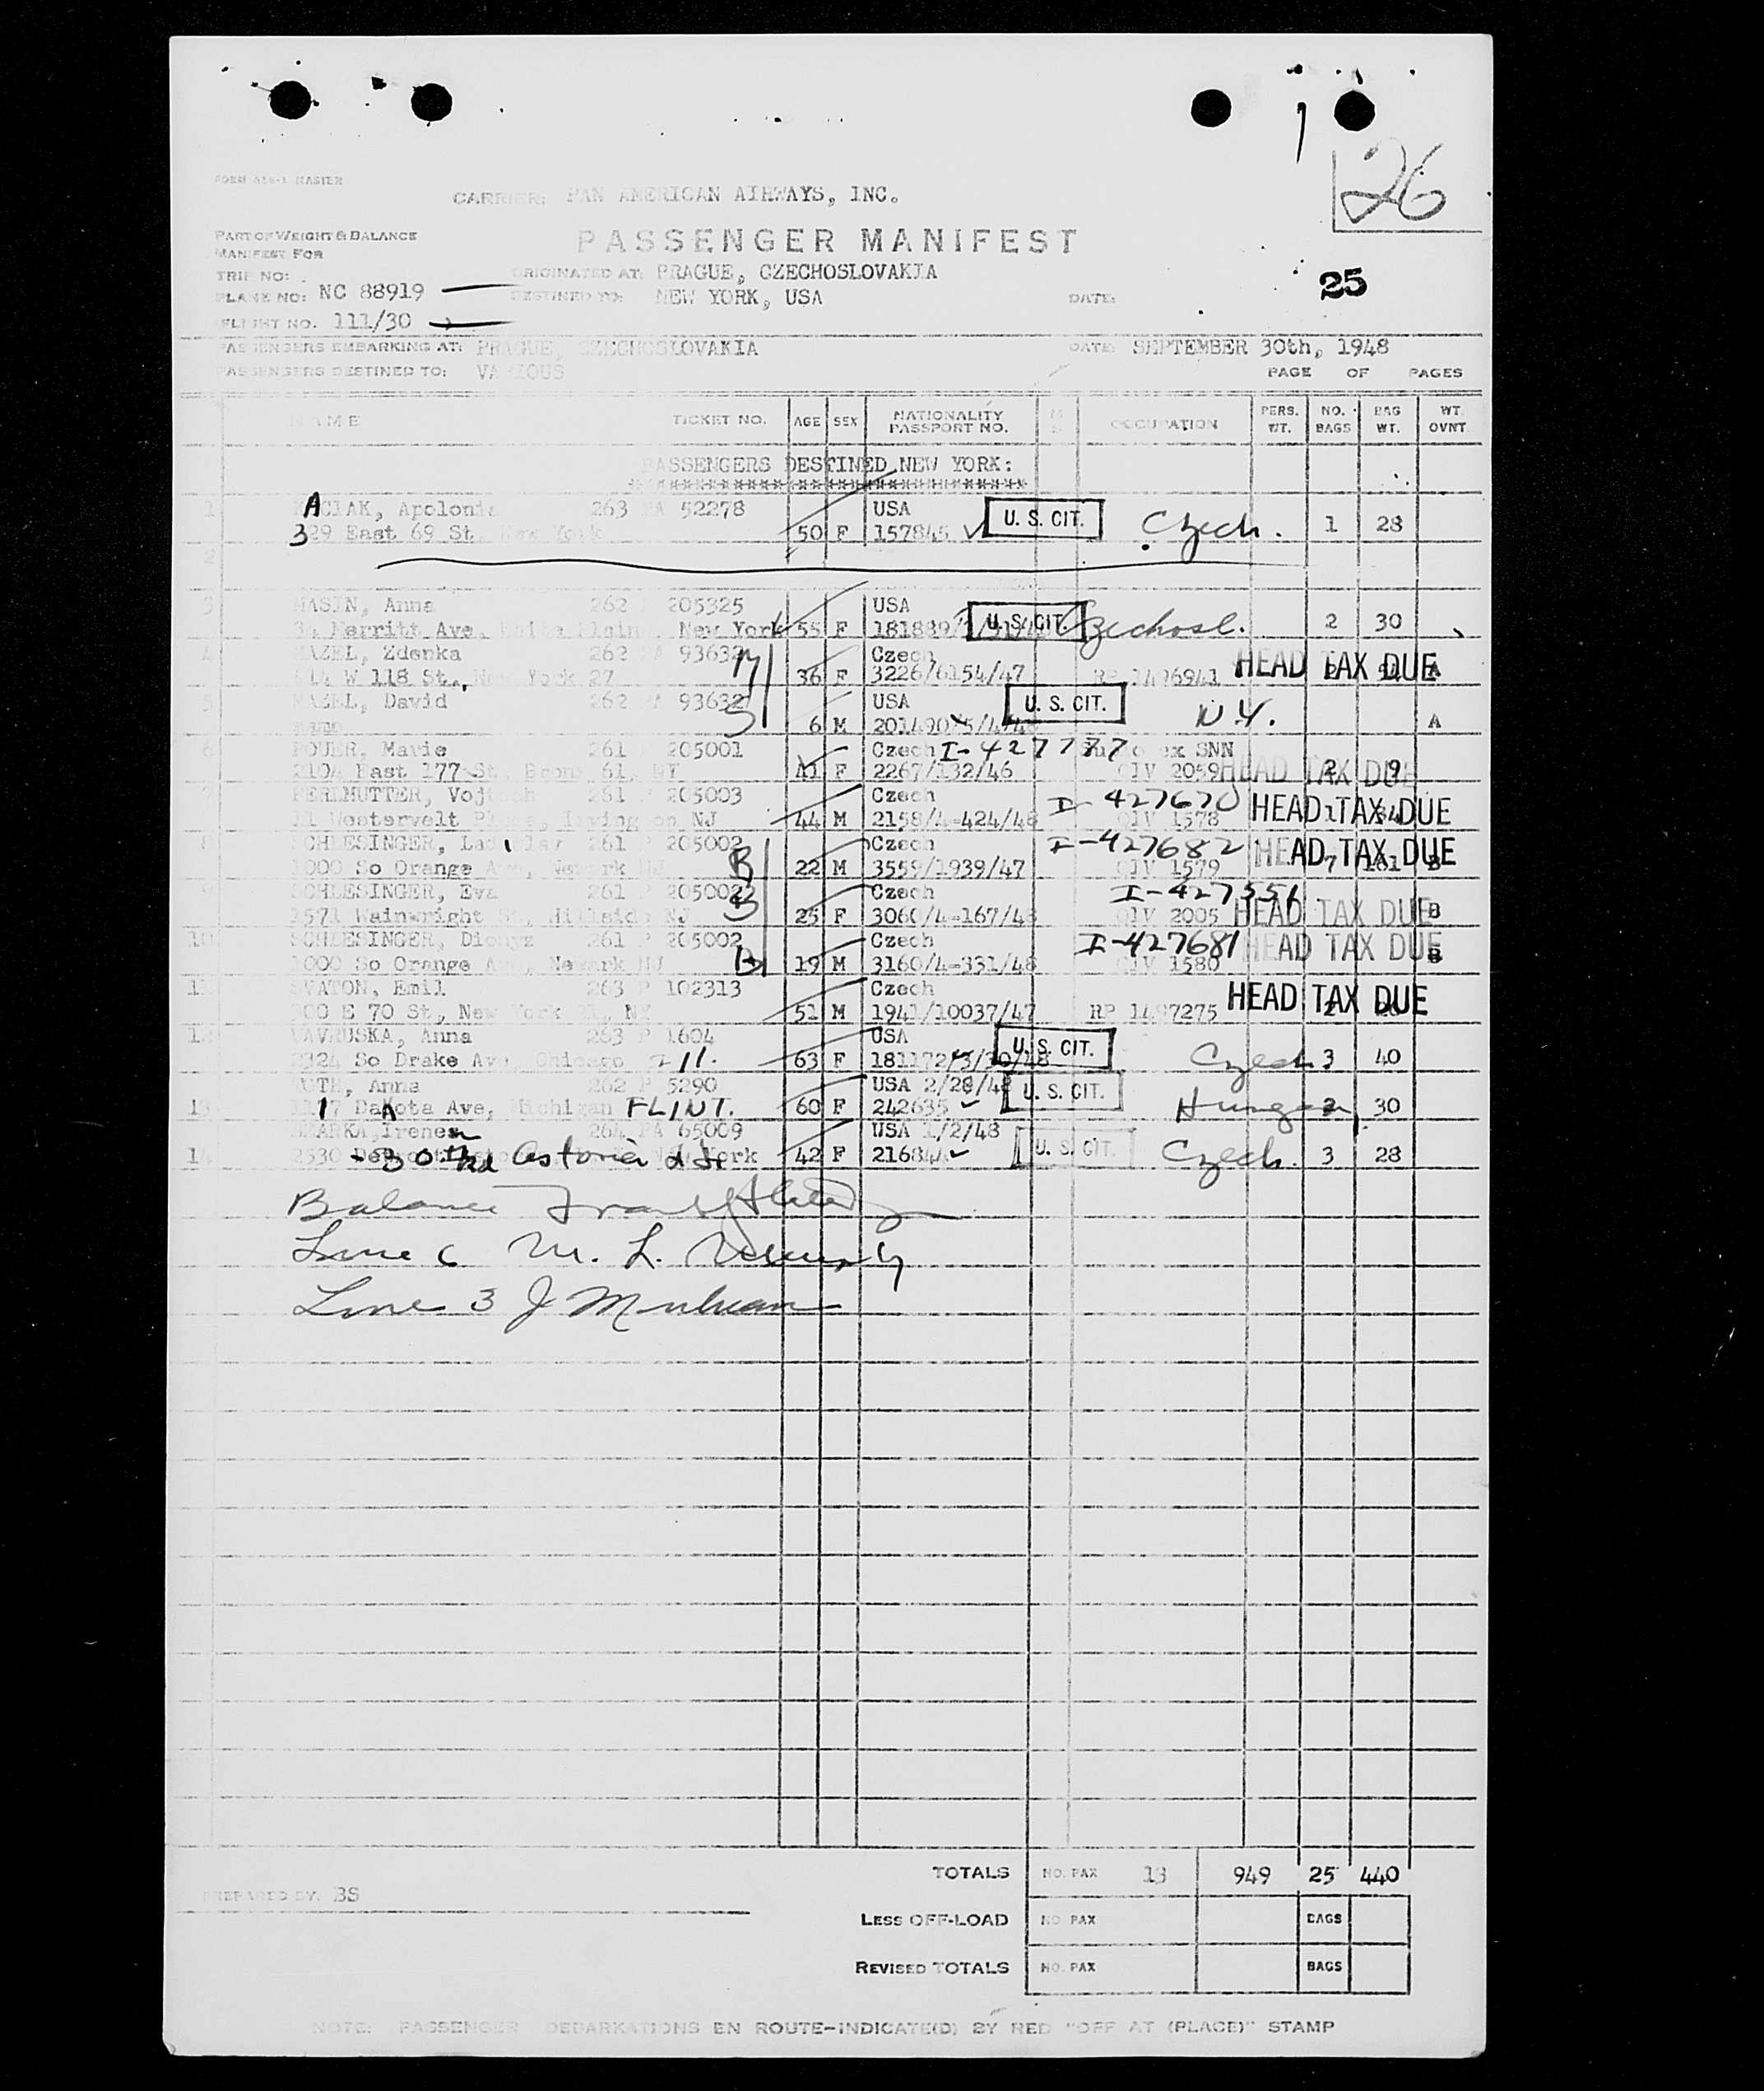 26
FORM MASTER
CARRIER: PAN AMERICAN AIRWAYS, INC.
PART OF WEIGHT & BALANCE
MANIFEST FOR
PASSENGER MANIFEST
TRIP NO:
ORIGINATED AT: PRAGUE, CZECHOSLOVAKIA
25
PLANE NO: NC 88919
DESTINED TO: NEW YORK, USA
DATE:
FLIGHT NO. 111/30
PASSENGERS EMBARKING AT: PRAGUE, CZECHOSLOVAKIA
DATE: SEPTEMBER 30th, 1948
PASSENGERS DESTINED TO: VARIOUS
PAGE OF PAGES
NAME TICKET NO. AGE SEX NATIONALITY PASSPORT NO. OCCUPATION PERS. WT. NO. BAGS BAG WT. WT. OVNT
PASSENGERS DESTINED NEW YORK:
1 ACIAK, Apolonia 263 PA 52278 USA
329 East 69 St, New York 50 F 157845 U. S. CIT. Czech. 1 28
2
3 MASIN, Anna 262 205325 USA
34 Merritt Ave, White Plains, New York 55 F 181889 U. S. CIT. Czechosl. 2 30
4 MAZEL, Zdenka 262 PA 93632 M Czech HEAD TAX DUE
414 W 118 St., New York 27 36 F 3226/6154/47 RP 1496941 A
5 MAZEL, David 262 93632 USA U. S. CIT.
S 6 M 201490 5/4/48 N.Y. A
6 POUER, Marie 261 205001 Czech I-427777 ex SNN
2104 East 177 St, Bronx 61, NY 41 F 2267/132/46 QIV 2059 HEAD TAX DUE 2 9
7 PERLMUTTER, Vojtech 261 P 205003 Czech I-427670 HEAD TAX DUE
11 Westervelt Place, Irvington NJ 44 M 2158/4-424/48 QIV 1578
8 SCHLESINGER, Ladislav 261 P 205002 B Czech I-427682 HEAD TAX DUE
1000 So Orange Ave, Newark NJ 22 M 3559/1939/47 QIV 1579 7 181 B
9 SCHLESINGER, Eva 261 P 205002 B Czech I-427351
1571 Wainwright St, Hillside NJ 25 F 3060/4-167/48 QIV 2005 HEAD TAX DUE B
10 SCHLESINGER, Dionyz 261 P 205002 Czech I-427681 HEAD TAX DUE
1000 So Orange Ave, Newark NJ B 19 M 3160/4-331/48 QIV 1580 B
11 SVATON, Emil 263 P 102313 Czech HEAD TAX DUE
300 E 70 St, New York 21, NY 51 M 1941/10037/47 RP 1497275
12 VAVRUSKA, Anna 263 P 1604 USA U. S. CIT.
2324 So Drake Ave, Chicago Ill. 63 F 181172 3/30/48 Czech 3 40
TOTH, Anna 262 P 5290 USA 2/28/48 U. S. CIT.
13 Dakota Ave, Michigan FLINT. 60 F 242635 Hungary 2 30
Irene 264 PA 65009 USA 1/2/48
14 2530 - 30th Rd Astoria L I New York 42 F U. S. CIT. Czech. 3 28
Balance
Line 6 M. L.
Line 3 J
TOTALS NO. PAX 13 949 25 440
PREPARED BY. BS
LESS OFF-LOAD NO PAX BAGS
REVISED TOTALS NO. PAX BAGS
NOTE: PASSENGER DEBARKATIONS EN ROUTE-INDICATE(D) BY RED "OFF AT (PLACE)" STAMP